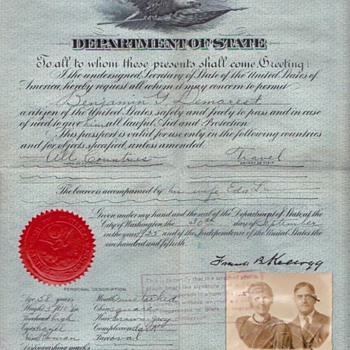 DEPARTMENT OF STATE
To all to whom these presents shall come, Greeting:
I the undersigned Secretary of State of the United States of
America, hereby request all whom it may concern to permit
Benjamin G. Demarest
a citizen of the United States safely and freely to pass and in case
of need to give him all lawful Aid and Protection.
This passport is valid for use only in the following countries
and for objects specified, unless amended.
All Countries Travel
The bearer is accompanied by his wife, Edst
Given under my hand and the seal of the Department of State, at the
City of Washington, the 30th day of September
in the year 1925 and of the Independence of the United States the
one hundred and fiftieth.
Frank B. Kellogg
PERSONAL DESCRIPTION
Age 58 years Mouth
Height Chin square
Forehead high Hair
Eyes hazel Complexion
Nose Roman Face oval
Distinguishing marks